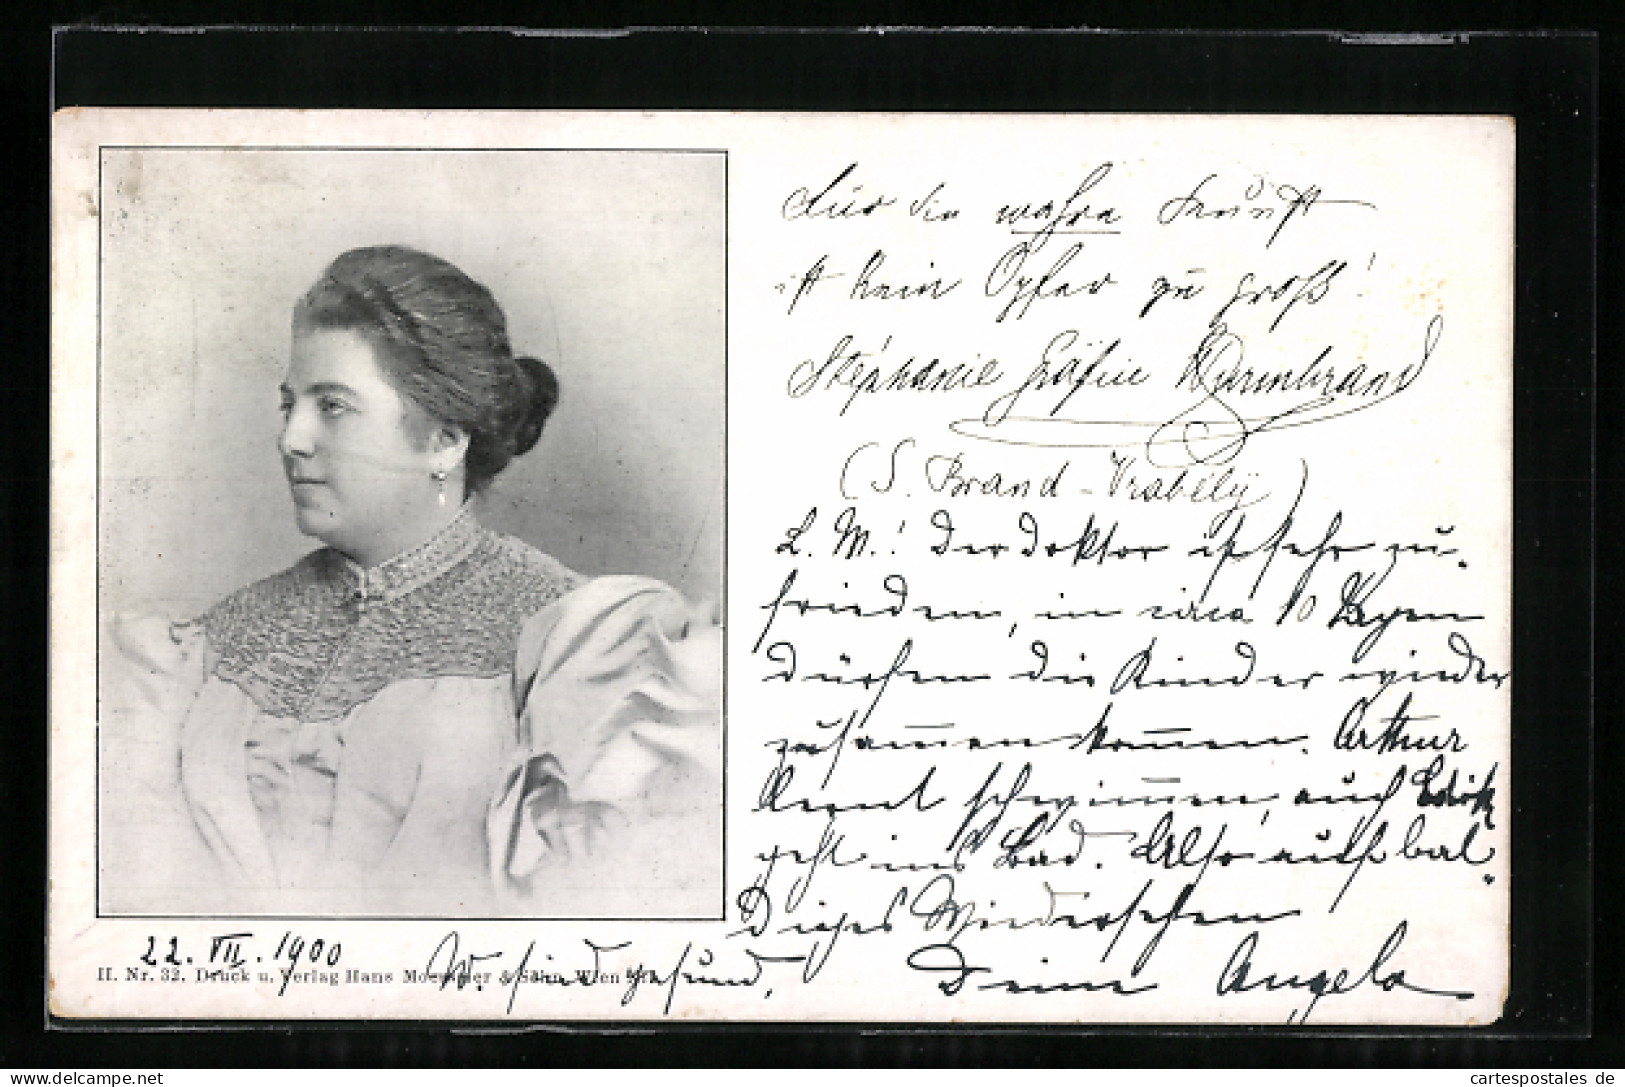 Für die wahre Kunst
ist kein Opfer zu groß!
Stéphanie Gräfin Wurmbrand
(S. Brand-Vrabély)
L. M.! Der Doktor ist sehr zu-
frieden, in circa 10 Tagen
dürfen die Kinder wieder
zusammen kommen. Arthur
lernt schwimmen, auch Edith
geht ins Bad. Also auf bal-
diges Wiedersehen
Deine Angela
22. VII. 1900
W. sind gesund.
II. Nr. 32. Druck u. Verlag Hans & Sohn, Wien
cartespostales de